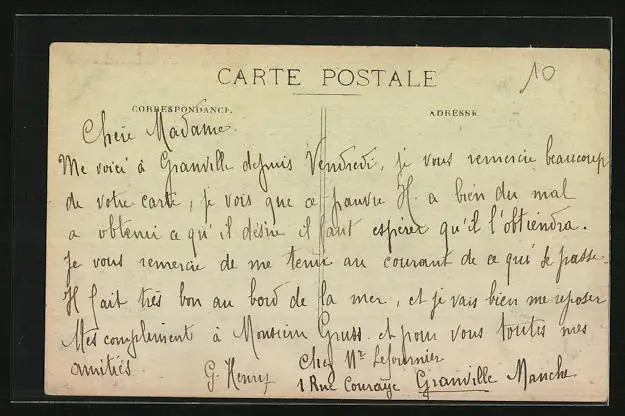 CARTE POSTALE
10
CORRESPONDANCE.
ADRESSE
Chère Madame.
Me voici à Granville depuis Vendredi, je vous remercie beaucoup
de votre carte, je vois que ce pauvre H. a bien du mal
a obtenir ce qu'il désire il faut espérer qu'il l'obtiendra.
Je vous remercie de me tenir au courant de ce qui se passe.
Il fait très bon au bord de la mer, et je vais bien me reposer
Mes compliment à Monsieur Gruss. et pour vous toutes mes
amitiés.
G. Henry
Chez Mr Lefournier
1 Rue Couraye Granville Manche